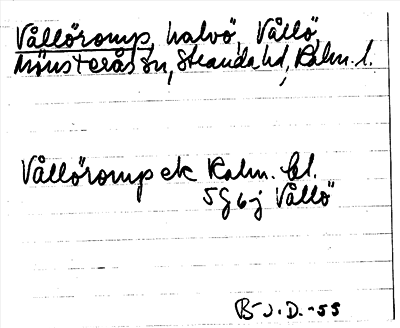 Vållöromp, halvö, Vållö,
Mönsterås sn, Stranda hd, Kalm. l.
Vållöromp ek Kalm. bl.
5G6j Vållö
B-J.D.-55